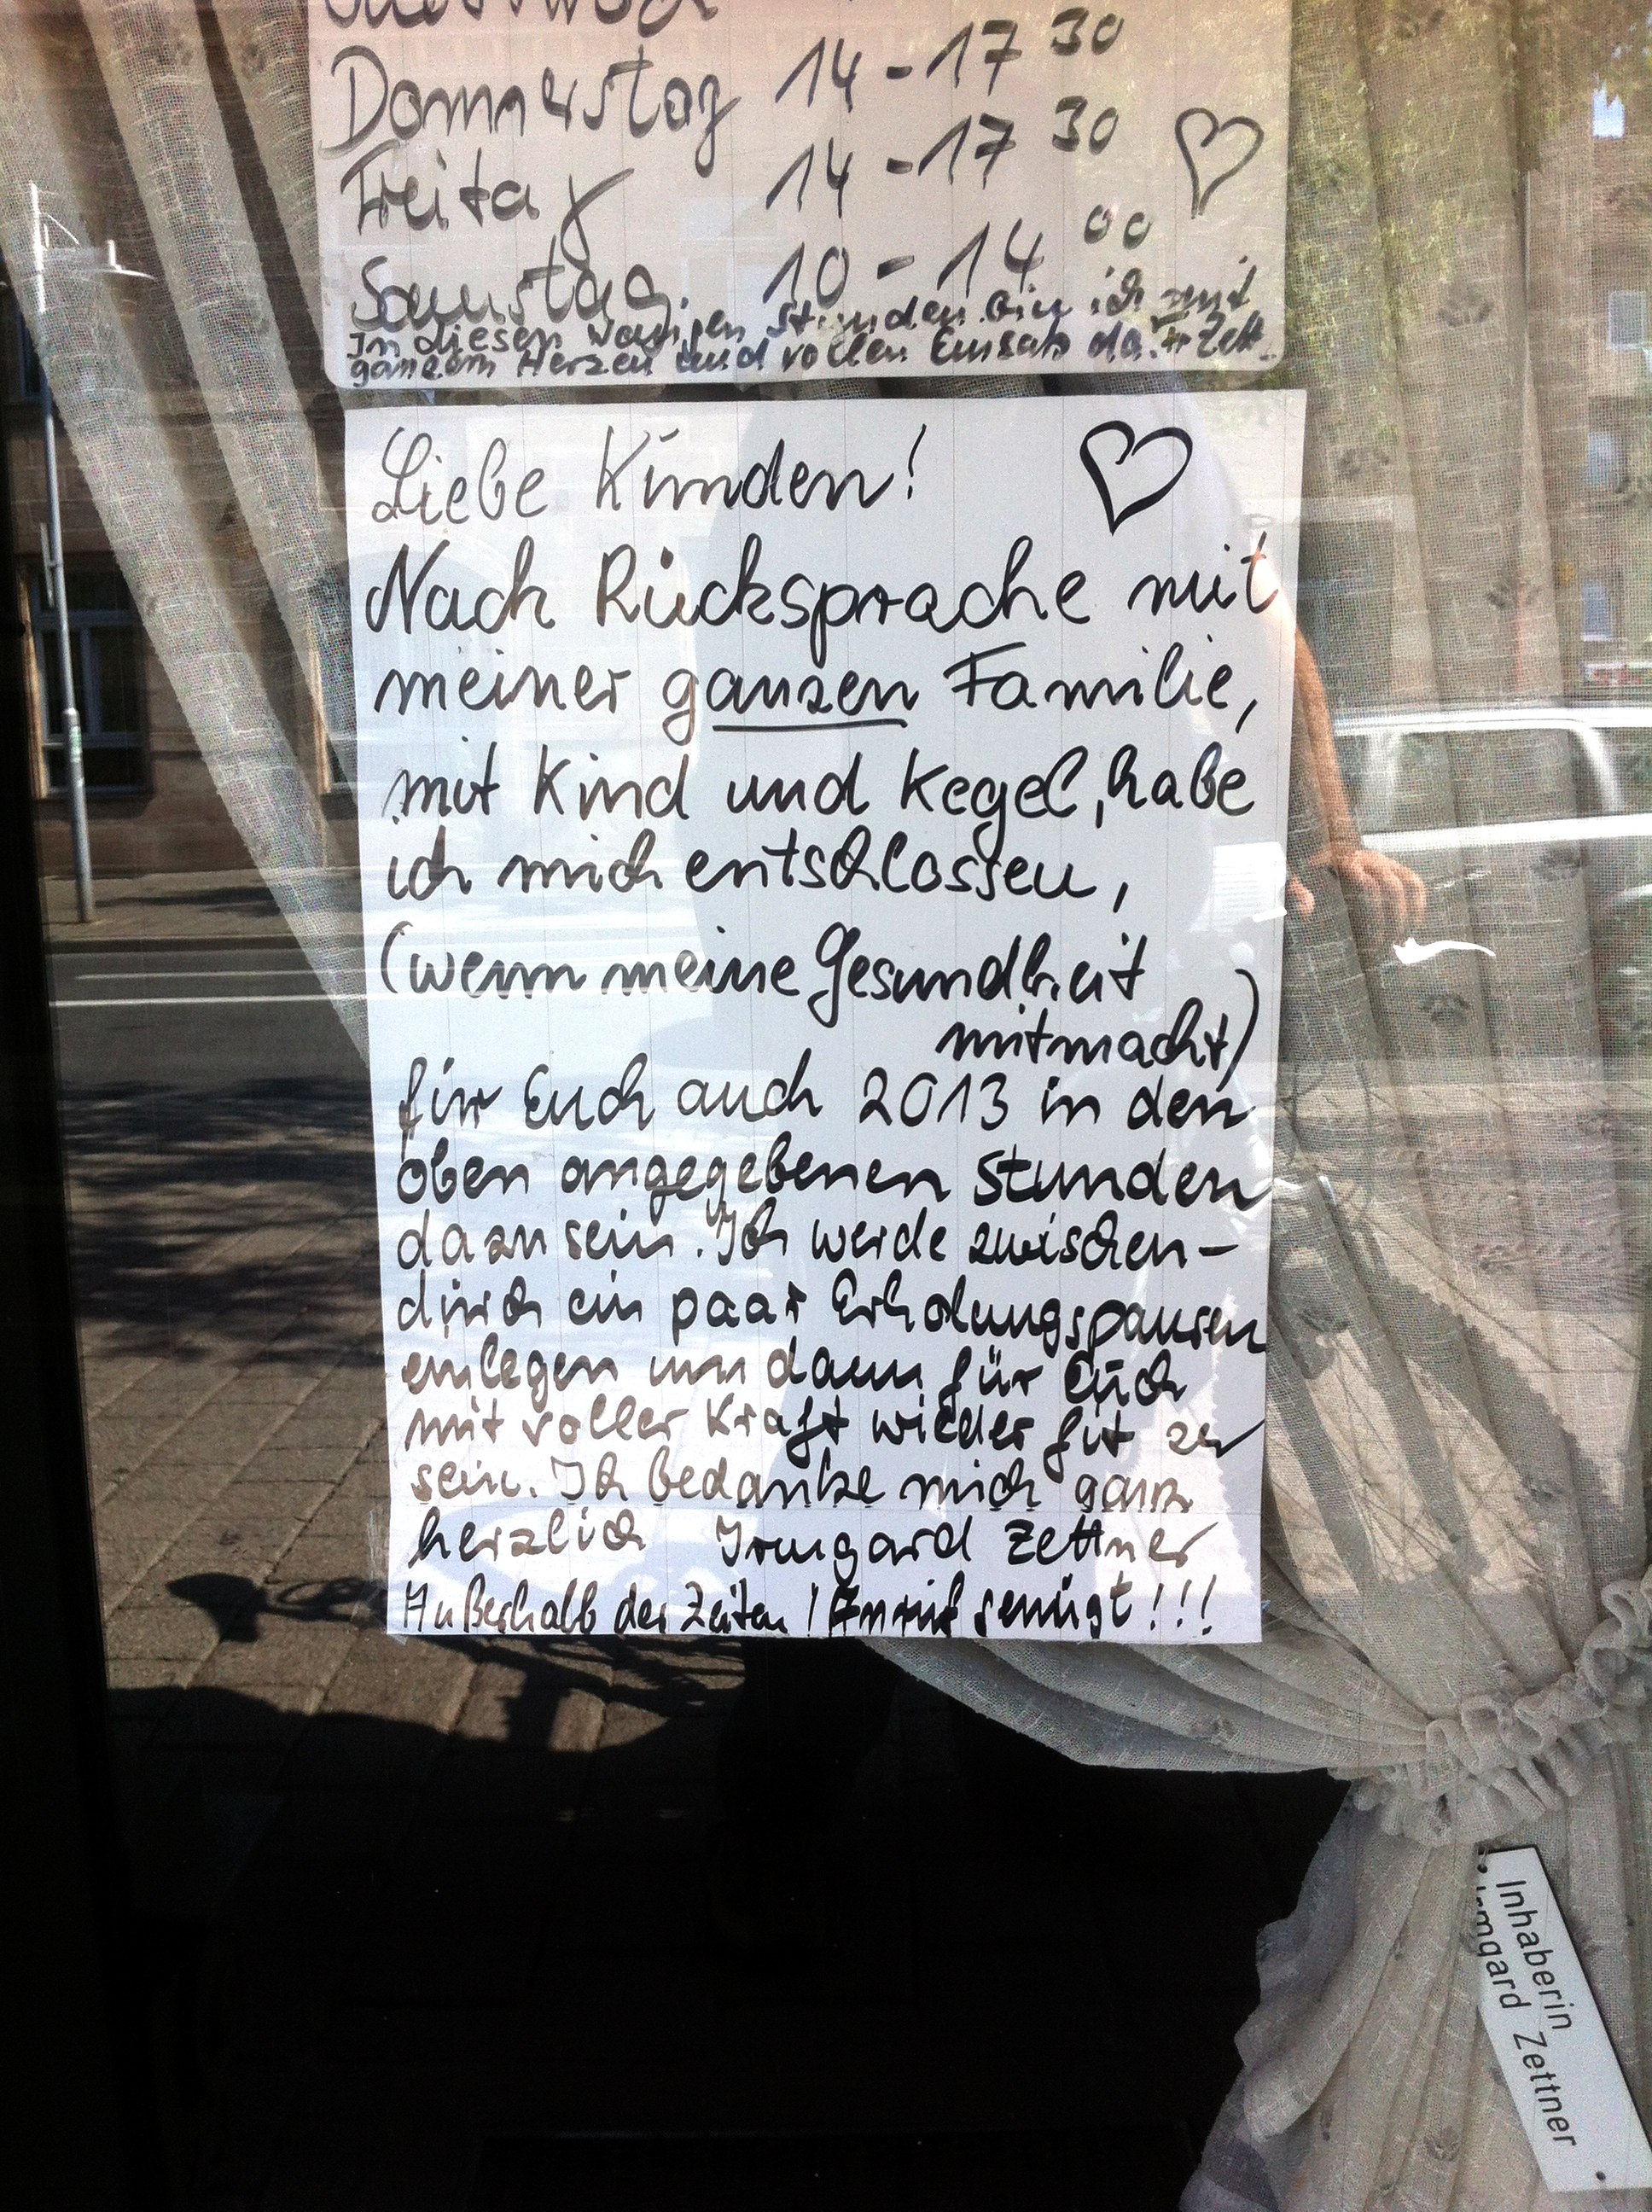 Donnerstag 14-17 30
Freitag 14-17 30
Samstag. 10-14 00
In diesen wenigen Stunden bin ich mit
ganzem Herzen und vollen Einsatz da. Zett.
Liebe Kunden!
Nach Rücksprache mit
meiner ganzen Familie,
mit Kind und Kegel, habe
ich mich entschlossen,
(wenn meine Gesundheit
mitmacht)
für Euch auch 2013 in den
oben angegebenen Stunden
da zu sein. Ich werde zwischen-
durch ein paar Erholungspausen
einlegen um dann für Euch
mit voller Kraft wieder fit zu
sein. Ich bedanke mich ganz
herzlich Irmgard Zettner
Außerhalb der Zeiten! Anruf genügt!!!
Inhaberin
Irmgard Zettner